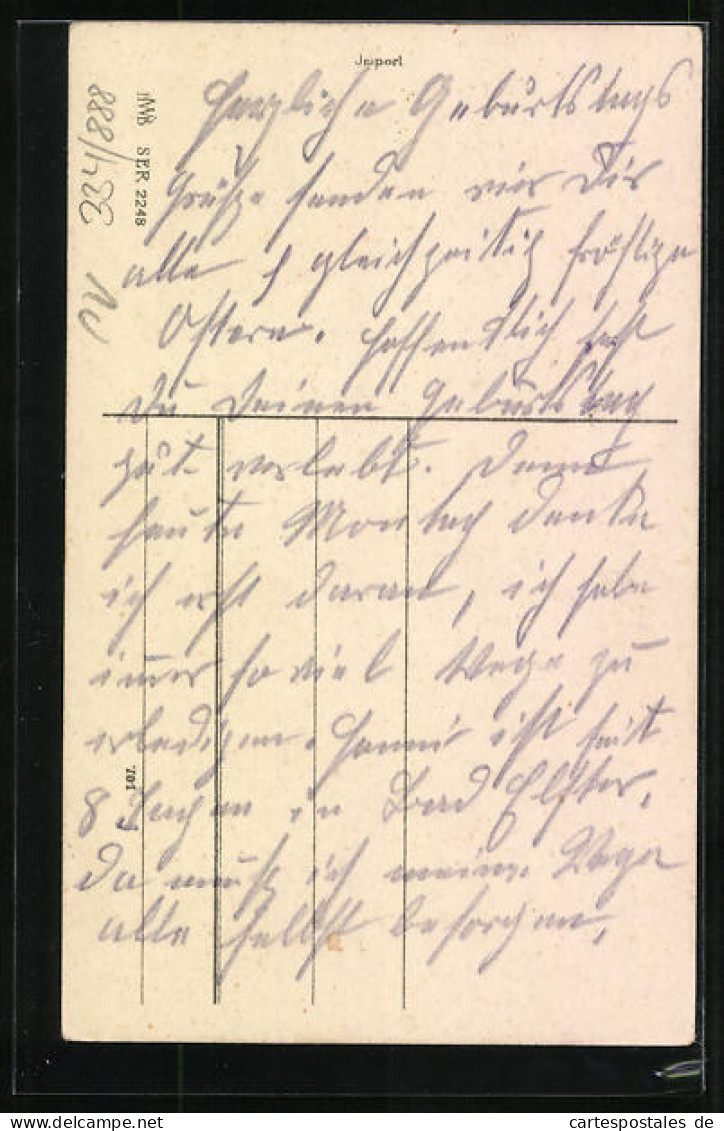 Import
HWB SER 2248
334/888
Herzliche Geburtstags
Grüße senden wir Dir
alle & gleichzeitig fröhliche
Ostern. Hoffentlich hast
Du Deinen Geburtstag
gut verlebt. Denn
heute Montag denke
ich erst daran, ich habe
immer so viel Wege zu
erledigen. Hanni ist seit
8 Tagen in Bad Elster,
da muß ich meine Wege
alle selbst besorgen,
701
cartespostales de